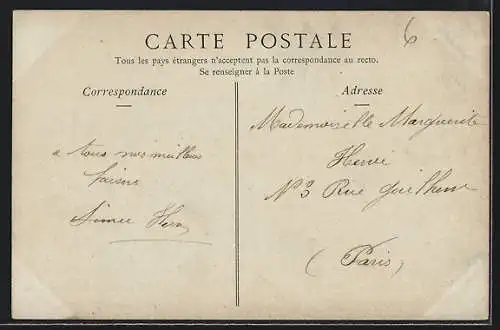 CARTE POSTALE
6
Tous les pays étrangers n'acceptent pas la correspondance au recto.
Se renseigner à la Poste
Correspondance
a tous nos meilleurs
baisers
Aimée
Adresse
Mademoiselle Marguerite
Henri
N° 3 Rue Guilhem
(Paris)